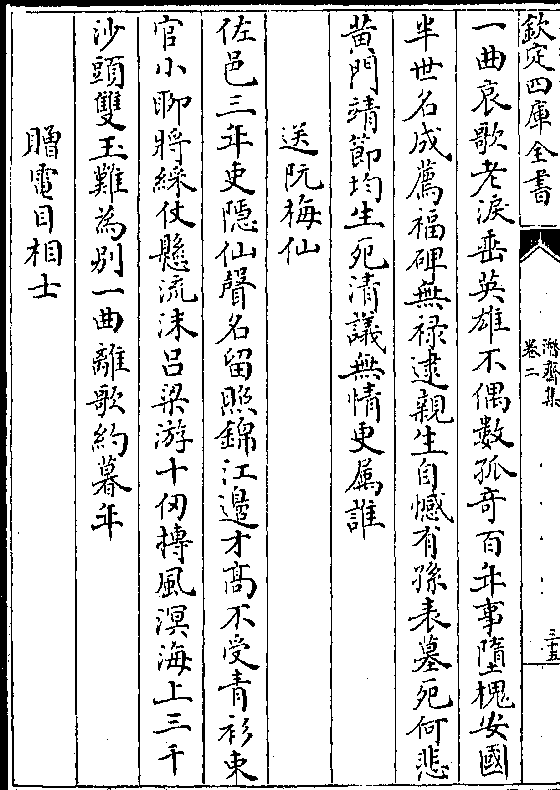 欽定四庫全書
潛齋集
卷二
三十五
一曲哀歌老淚垂英雄不偶數孤奇百年事墮槐安國
半世名成薦福碑無祿逮親生自憾有孫表墓死何悲
黄門靖節均生死清議無情更属誰
送阮梅仙
佐邑三年吏隱仙聲名留照錦江邉才髙不受青衫束
官小聊將綵仗懸流沫吕梁游十仞摶風溟海上三千
沙頭雙玉難為别一曲離歌約暮年
贈電目相士